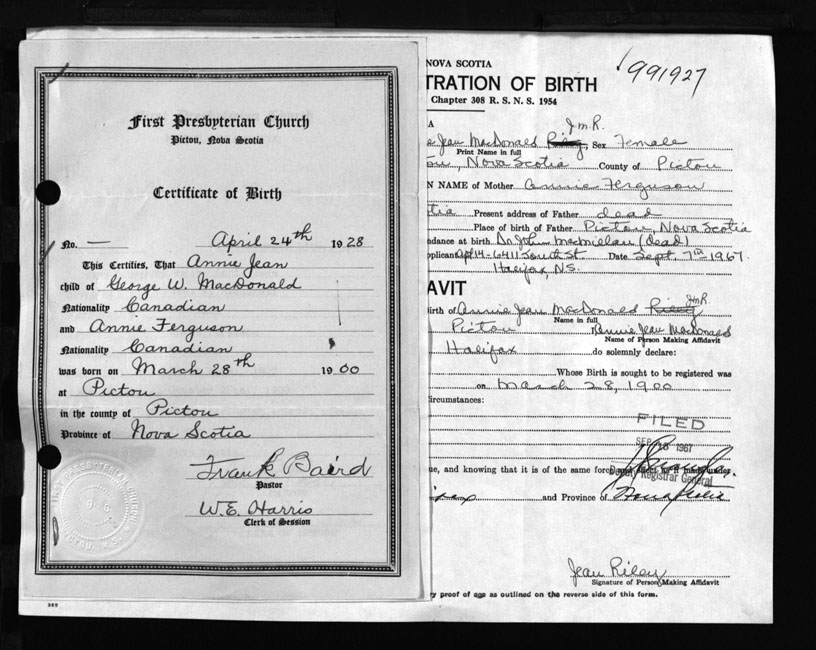 First Presbyterian Church
Pictou, Nova Scotia
Certificate of Birth
No. — April 24th 1928
This Certifies, That Annie Jean
child of George W. MacDonald
Nationality Canadian
and Annie Ferguson
Nationality Canadian
was born on March 28th 1900
at Pictou
in the county of Pictou
Province of Nova Scotia
Frank Baird
Pastor
W.E. Harris
Clerk of Session
382
NOVA SCOTIA
991927
TRATION OF BIRTH
Chapter 308 R. S. N. S. 1954
J.M.R.
e Jean MacDonald Riley, Sex Female
Print Name in full
ou, Nova Scotia County of Pictou
N NAME of Mother Annie Ferguson
tia Present address of Father dead
Place of birth of Father Pictou, Nova Scotia
ndance at birth Dr. John (dead)
pplicant Apt 14-6411 South St Date Sept 7th 1967
Halifax, N.S.
AVIT
J.M.R.
Birth of Annie Jean MacDonald Riley
Name in full
Pictou Annie Jean MacDonald
Name of Person Making Affidavit
Halifax do solemnly declare:
Whose Birth is sought to be registered was
on March 28, 1900
ircumstances:
FILED
SEP 1967
ue, and knowing that it is of the same force and effect as if made under
Deputy Registrar General
fax and Province of Nova Scotia
Jean Riley
Signature of Person Making Affidavit
ry proof of age as outlined on the reverse side of this form.